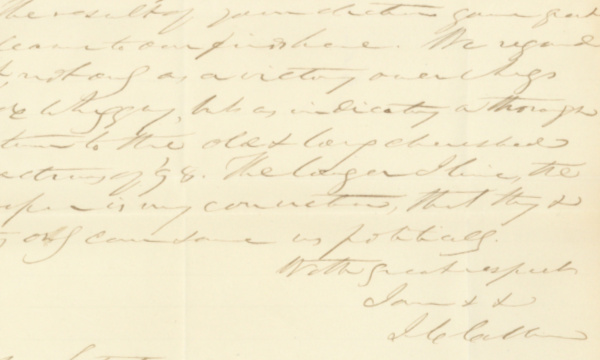 the result of your election gave great
pleasure to our friends here. We regard
it, not only as a victory over Whigs
& Whiggery, but as indicating a thorough
return to the old & long cherished
doctrines of '98. The longer I live, the
deeper is my conviction, that they &
they only can save us politically.
With great respect
I am & &
J. C. Calhoun